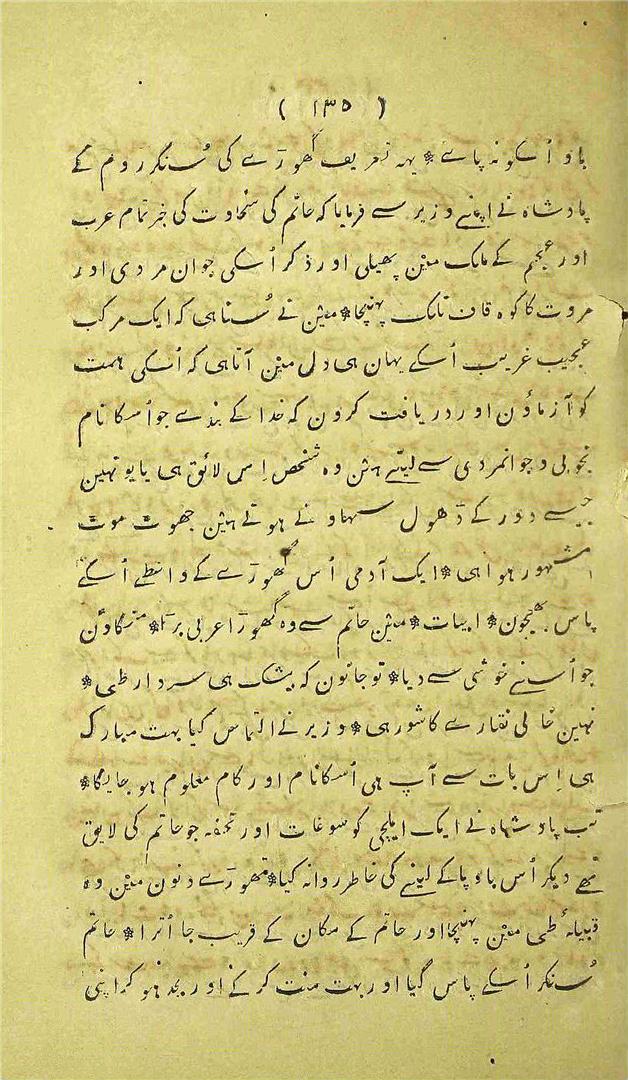 ( ۱۳۵ )
باو اُسکو نہ پاسے * یہہ تعریف گھوڑے کی سُنکر روم کے
پادشاہ نے اپنے وزیر سے فرمایا کہ حاتم کی سخاوت کی خبر تمام عرب
اور عجم کے ملک میٖن پھیلی اور ذکر اُسکی جوان مردی اور
مروت کا کوہ قاف تلک پہنچا * میٖن نے سُنا ہی کہ ایک مرکب
عجیب غریب اُسکے یہان ہی دل میٖن آتا ہی کہ اُسکی ہمت
کو آزماؤن اور دریافت کرون کہ خدا کے بندے جو اُسکا نام
بخوبی و جوانمردی سے لیتے ہیٖن وہ شخص اِس لائق ہی یا یونہین
جیسے دور کے ڈھول سہاونے ہوتے ہیٖن جھوٹ موٹ
مشہور ہوا ہی * ایک آدمی اُس گھوڑے کے واسطے اُسکے
پاس بھیجون * ابیات * میٖن حاتم سے وہ گھوڑا عربی بڑا * منگاؤن
جو اُسنے خوشی سے دیا * تو جانون کہ بیشک ہی سردار طی *
نہین خالی نقارے کا شور ہی * وزیر نے التماس کیا بہت مبارک
ہی اِس بات سے آپ ہی اُسکا نام اور کام معلوم ہو جایگا *
تب پادشاہ نے ایک ایلچی کو سوغات اور تحفہ جو حاتم کی لایق
تھے دیکر اُس باوپا کے لینے کی خاطر روانہ کیا * تھوڑے دنون میٖن وہ
قبیلہٴ طی میٖن پہنچا اور حاتم کے مکان کے قریب جا اُترا * حاتم
سُنکر اُسکے پاس گیا اور بہت منت کر کے اور بجد ہو کر اپنی